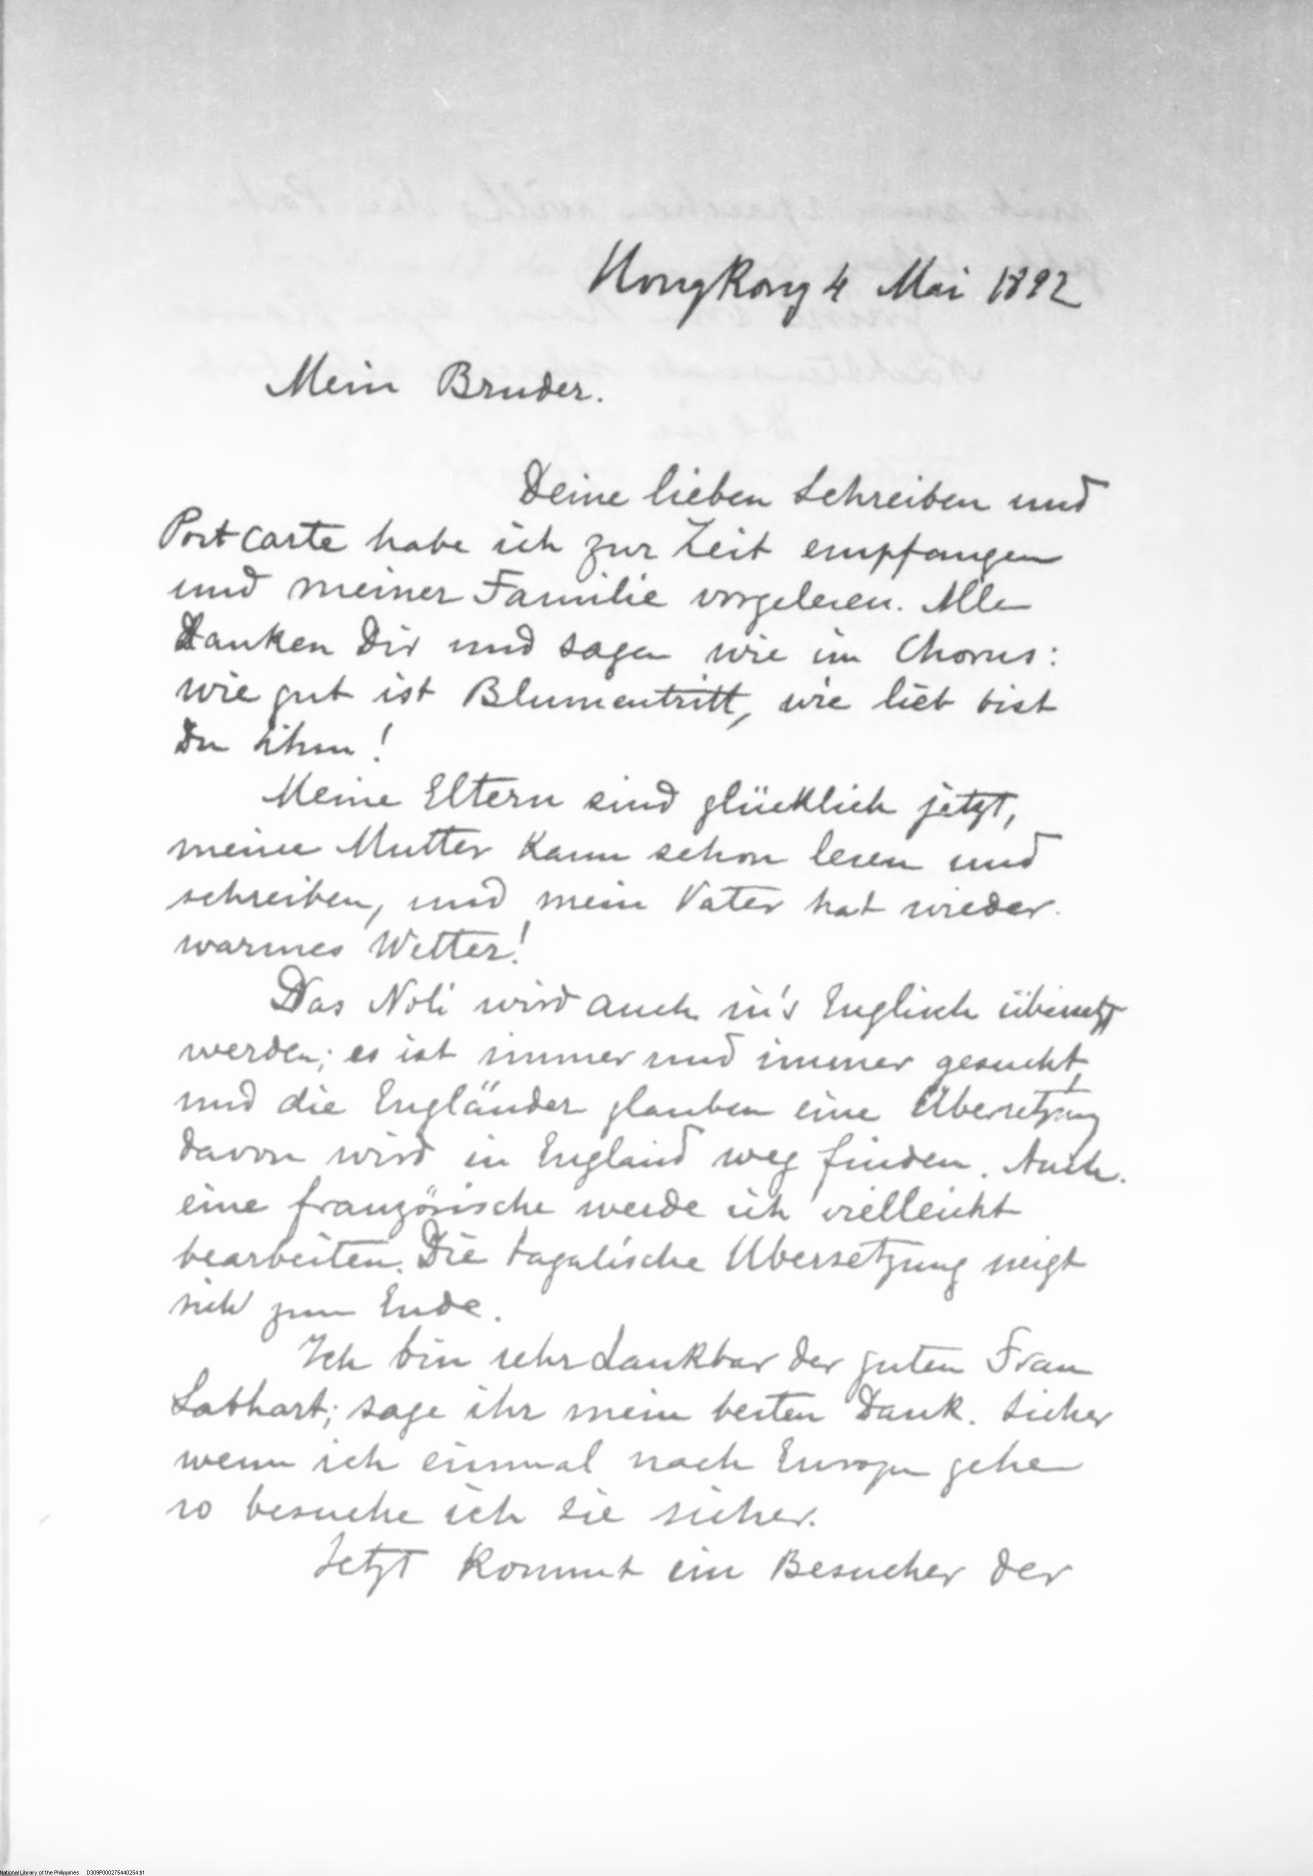 HongKong 4 Mai 1892
Mein Bruder.
Deine lieben Schreiben und
Postcarte habe ich zur Zeit empfangen
und meiner Familie vorgelesen. Alle
Danken Dir und sagen wie im Chorus:
wie gut ist Blumentritt, wie lieb bist
Du ihm!
Meine Eltern sind glücklich jetzt,
meine Mutter kann schon lesen und
schreiben, und mein Vater hat wieder
warmes Wetter!
Das Noli wird auch in's Englisch übersetzt
werden; es ist immer und immer gesucht,
und die Engländer glauben eine Übersetzung
davon wird in England weg finden. Auch
eine französische werde ich vielleicht
bearbeiten. Die tagalische Übersetzung neigt
sich zum Ende.
Ich bin sehr dankbar der guten Frau
Labhart; sage ihr mein besten Dank. Sicher
wenn ich einmal nach Europa gehe
so besuche ich Sie sicher.
Jetzt kommt ein Besucher der
National Library of the Philippines